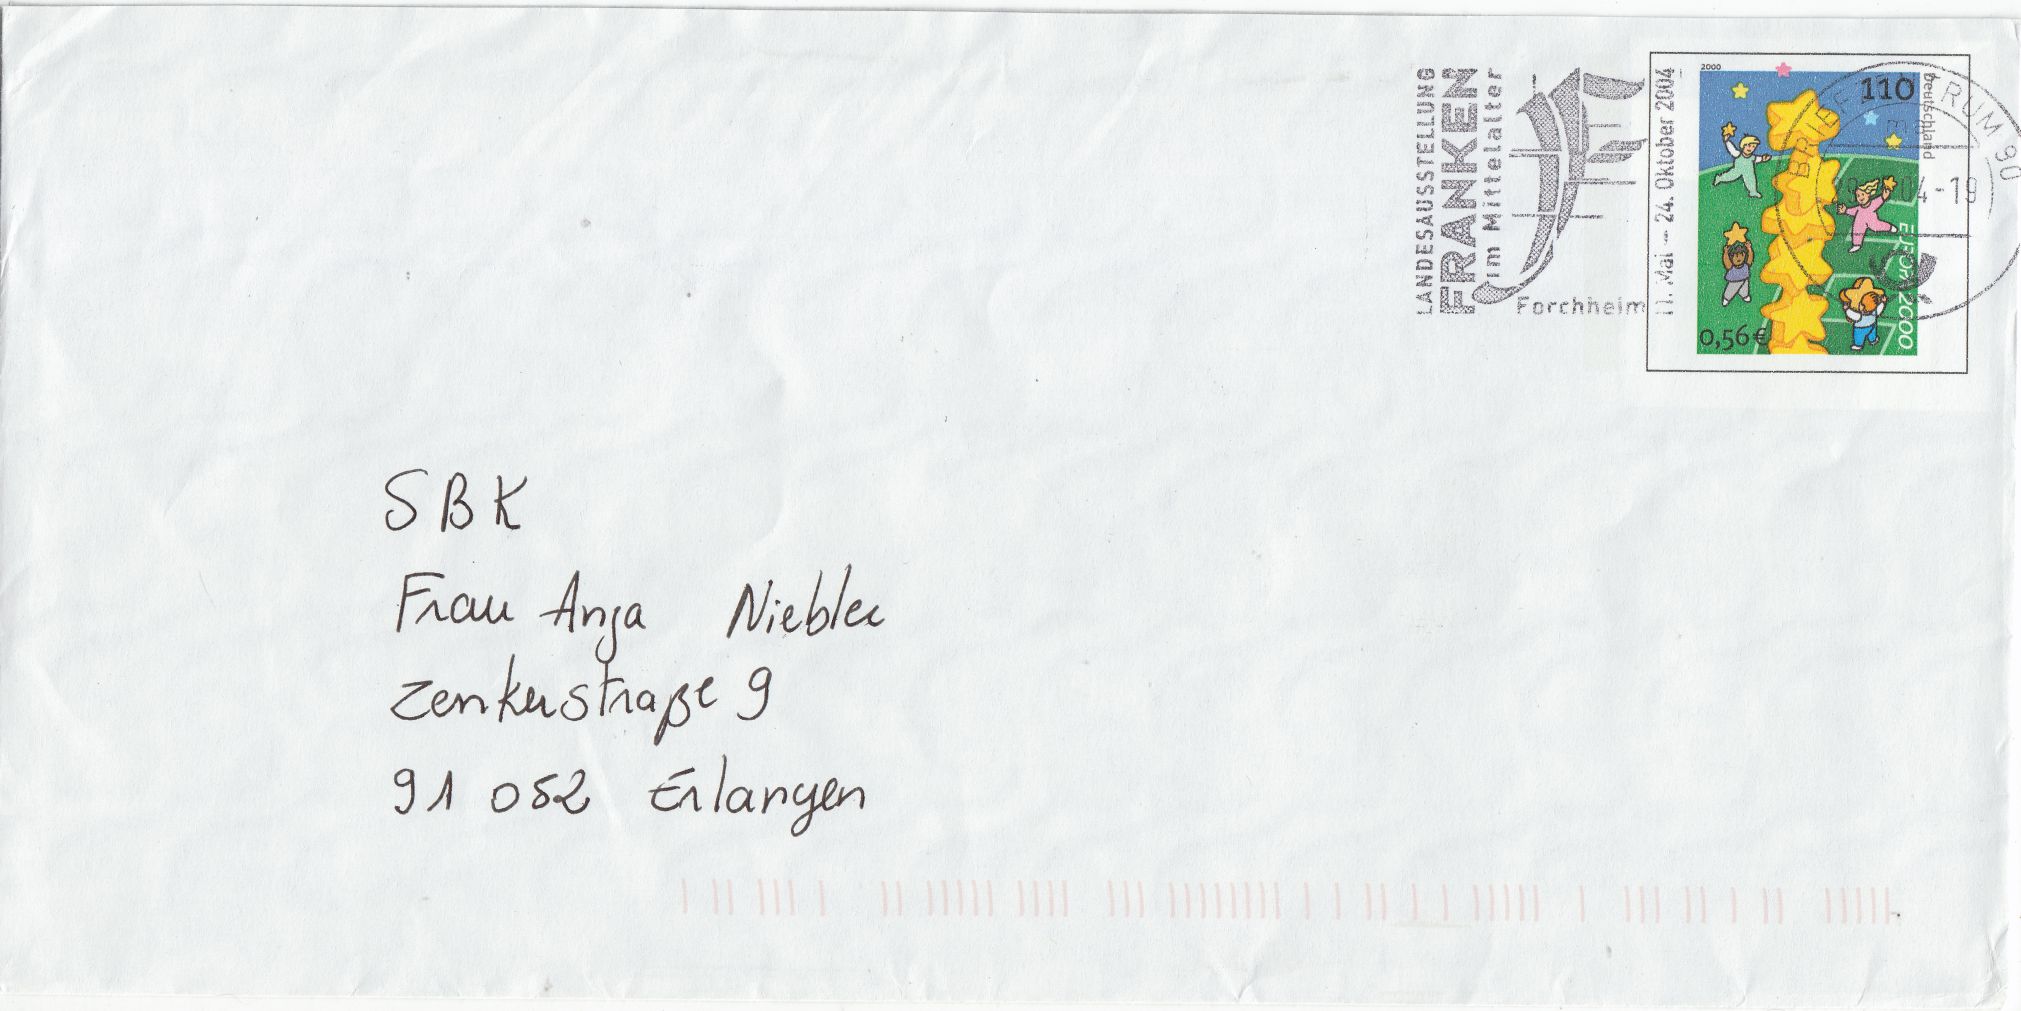 LANDESAUSSTELLUNG
FRANKEN
im Mittelalter
Forchheim
11. Mai – 24. Oktober 2004
2000
110
Deutschland
EUROPA 2000
0,56€
BRIEFZENTRUM 90
04-19
SBK
Frau Anja Niebler
Zenkerstraße 9
91 052 Erlangen